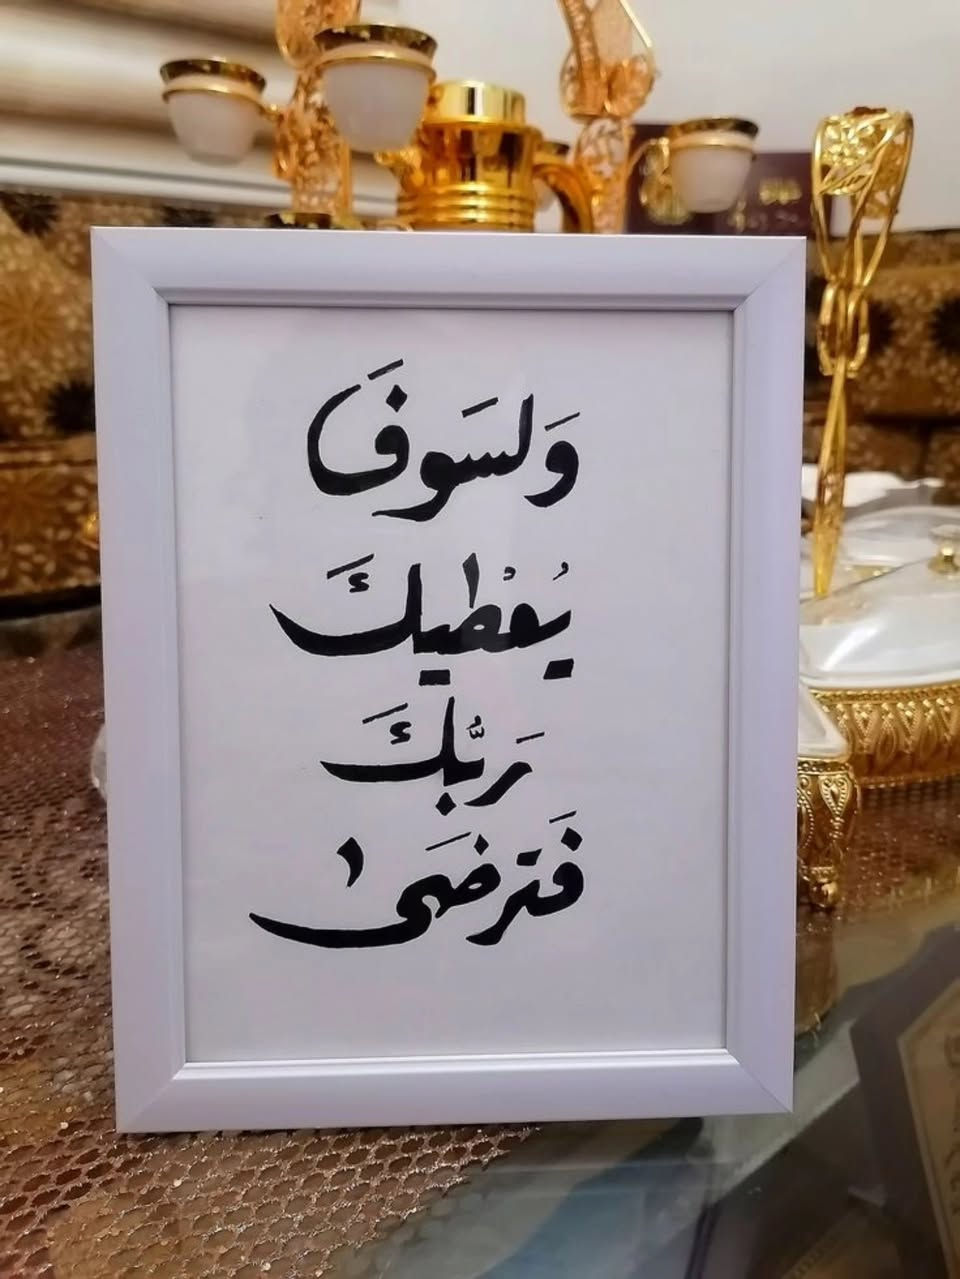 وَلسَوفَ
يُعْطيكَ
رَبُّكَ
فَترضَى